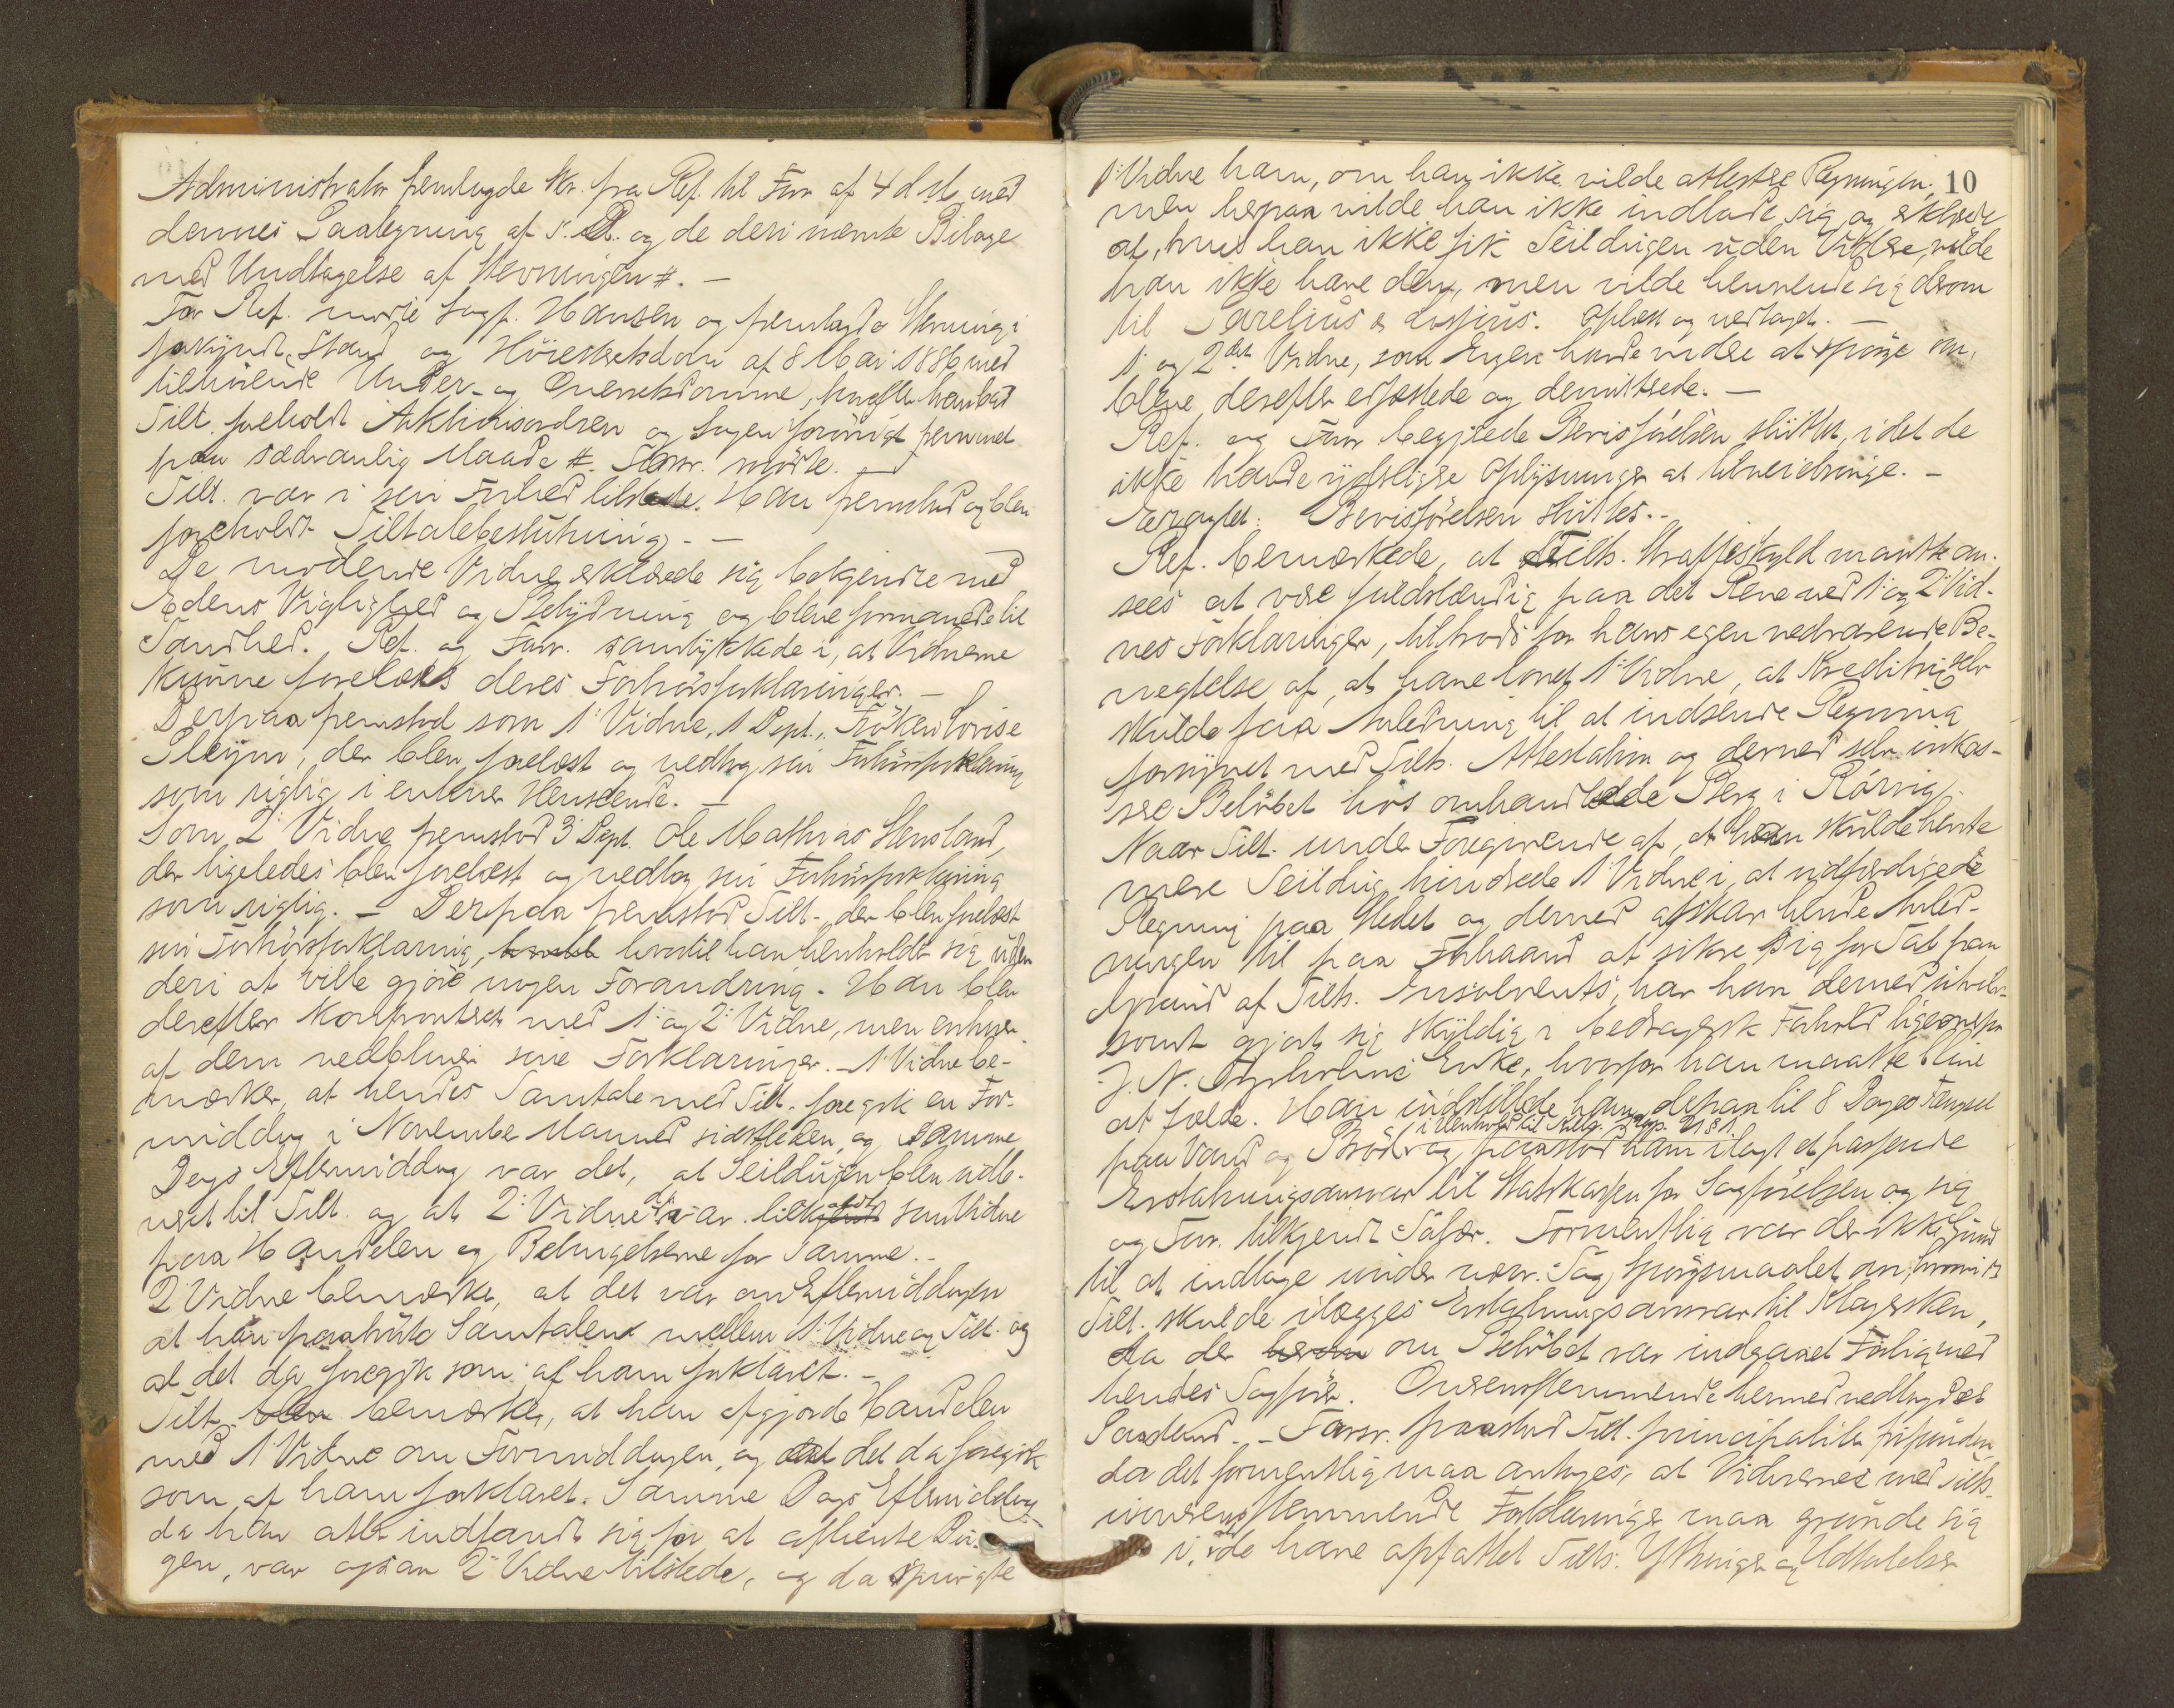 Administrator fremlagde Skr. fra Ref. til Forr af 4 d M med
dennes Paategning af s. D. og de deri nævnte Bilage
med Undtagelse af Stevningen #. —
For Ref. mødte Sagf. Hansen og fremlagde Stevning i
forkyndt Stand og Höiesteretsdom af 8 Mai 1886 med
tilhörende Under- og Overretsdomme, hvorefter han bad
Tilt. foreholdt Aktionsordren og Sagen forövrigt fremmet
paa sædvanlig Maade #. Forsr. mødte. —
Tilt. var i sin Frihed tilstede. Han fremstod og blev
foreholdt Tiltalebeslutning. —
De mødende Vidner erklærede sig bekjendte med
Edens Vigtighed og Betydning og bleve formanede til
Sandhed. Ref. og Forr. samtykkede i, at Vidnerne
kunne forelæses deres Forhörsforklaringer. —
Derpaa fremstod som 1' Vidne, 1 Dept., Fröken Lovise
Pleym, der blev forelæst og vedtog sin Forhörsforklaring
som rigtig i enhver Henseende. —
Som 2' Vidne fremstod 3' Dept. Ole Mathias Hensland,
der ligeledes blev forelæst og vedtog sin Forhörsforklaring
som rigtig. — Derpaa fremstod Tilt., der blev forelæst
sin Forhörsforklaring, hvortil han henholdt sig uden
deri at ville gjöre nogen Forandring. Han blev
derefter konfronteret med 1' og 2' Vidne, men enhver
af dem vedblev sine Forklaringer. — 1' Vidne be-
mærker, at hendes Samtale med Tilt. foregik en For-
middag i November Maaned sidstleden, og samme
Dags Eftermiddag var det, at Seildugen blev udle-
veret til Tilt. og at 2' Vidne da var tilkaldt som Vidne
paa Handelen og Betingelserne for Samme. —
2' Vidne bemærker, at det var om Eftermiddagen
at han paahörte Samtalen mellem 1' Vidne og Tilt. og
at det da foregik som af ham forklaret. —
Tilt. bemærker, at han afgjorde Handelen
med 1 Vidne om Formiddagen, og at det da foregik
som af ham forklaret. Samme Dags Eftermiddag
da han atter indfandt sig for at afhente Du-
gen, var ogsaa 2' Vidne tilstede, og da spurgte
10
1' Vidne ham, om han ikke vilde attestere Regningen,
men herpaa vilde han ikke indlade sig og erklærede
at, hvis han ikke fik Seildugen uden Videre, vilde
han ikke have den, men vilde henvende sig derom
til Parelius &. Oplæst og vedtaget. —
1' og 2det Vidne, som Ingen havde videre at spörge om,
bleve derefter edfæstede og demitterede. —
Ref. og Forr begjærede Bevisförelsen sluttet, idet de
ikke havde yderligere Oplysninger at tilveiebringe. —
Eragtet: Bevisförelsen sluttes. —
Ref. bemærkede, at Tilts. Straffeskyld maatte an-
sees at være fuldstændig paa det Rene ved 1' og 2' Vid-
nes Forklaringer, tiltrods for hans egen vedvarende Be-
negtelse af, at have lovet 1' Vidne, at Kreditrix selv
skulde faa Anledning til at indsende Regning
forsynet med Tilts. Attestation og derved selv inkas-
sere Belöbet hos omhandlede Berg i Rörvig.
Naar Tilt. under Foregivende af, at han skulde hente
mere Seildug hindrede 1' Vidne i, at udfærdigede
Regning paa Stedet og derved afskar hende Anled-
ningen til paa Forhaand at sikre sig for Tab paa
Grund af Tilts. Insolvents, har han derved utvivl-
somt gjort sig skyldig i bedragersk Forhold ligeoverfor
J. N. Enke, hvorfor han maatte blive
at fælde. Han indstillede ham derpaa til 8 Dages Fængsel
paa Vand og Bröd i Henhold til Krls. Kap. 21 § 1 og paastod ham ilagt et passende
Erstatningsansvar til Statskassen for Sagförelsen og sig
og Forr. tilkjendt Salær. Formentlig var der ikke Grund
til at indtage under nærv. Sag Spörgsmaalet om, hvorvidt
Tilt. skulde ilægges Erstatningsansvar til Klagersken,
da der om Belöbet var indgaaet Forlig med
hendes Sagförer. Overensstemmende hermed nedlagdes
Paastand. — Forsr. paastod Tilt. principaliter frifunden
da det formentlig maa antages, at Vidnernes med Tilts.
uoverensstemmende Forklaringer maa grunde sig
i, at de have opfattet Tilts. Ytringer og Udtalelser